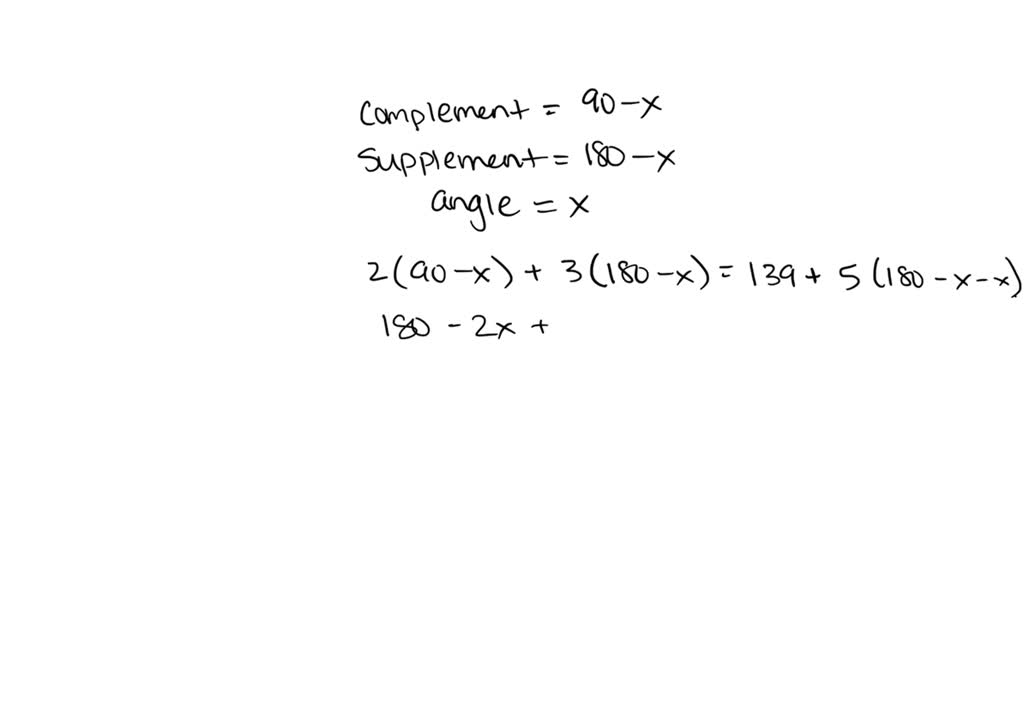 complement = 90-x
supplement = 180-x
angle = x
2(90-x) + 3(180-x) = 139 + 5(180-x-x)
180 - 2x +